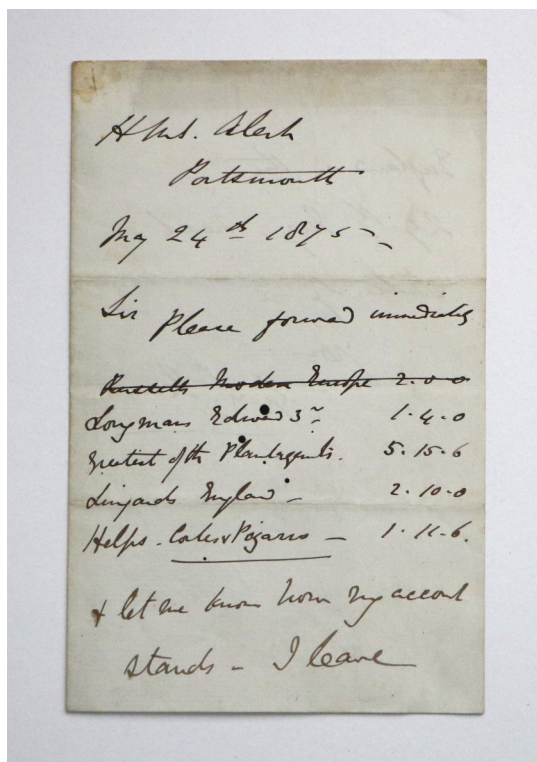 H.M.S. Alert
Portsmouth
May 24th 1875
Sir Please forward immediately
Russells Modern Europe 2.0.0
Longmans Edward 3rd 1.4.0
Greatest of the Plantagenets. 5.15.6
Lingards England - 2.10.0
Helps. Cortes & Pizarro - 1.11.6.
& let me know how my account
stands - I leave